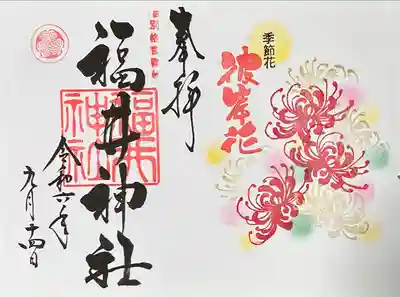 季節花
彼岸花
奉拝
福井神社
福井
神社
令和六年
九月十四日